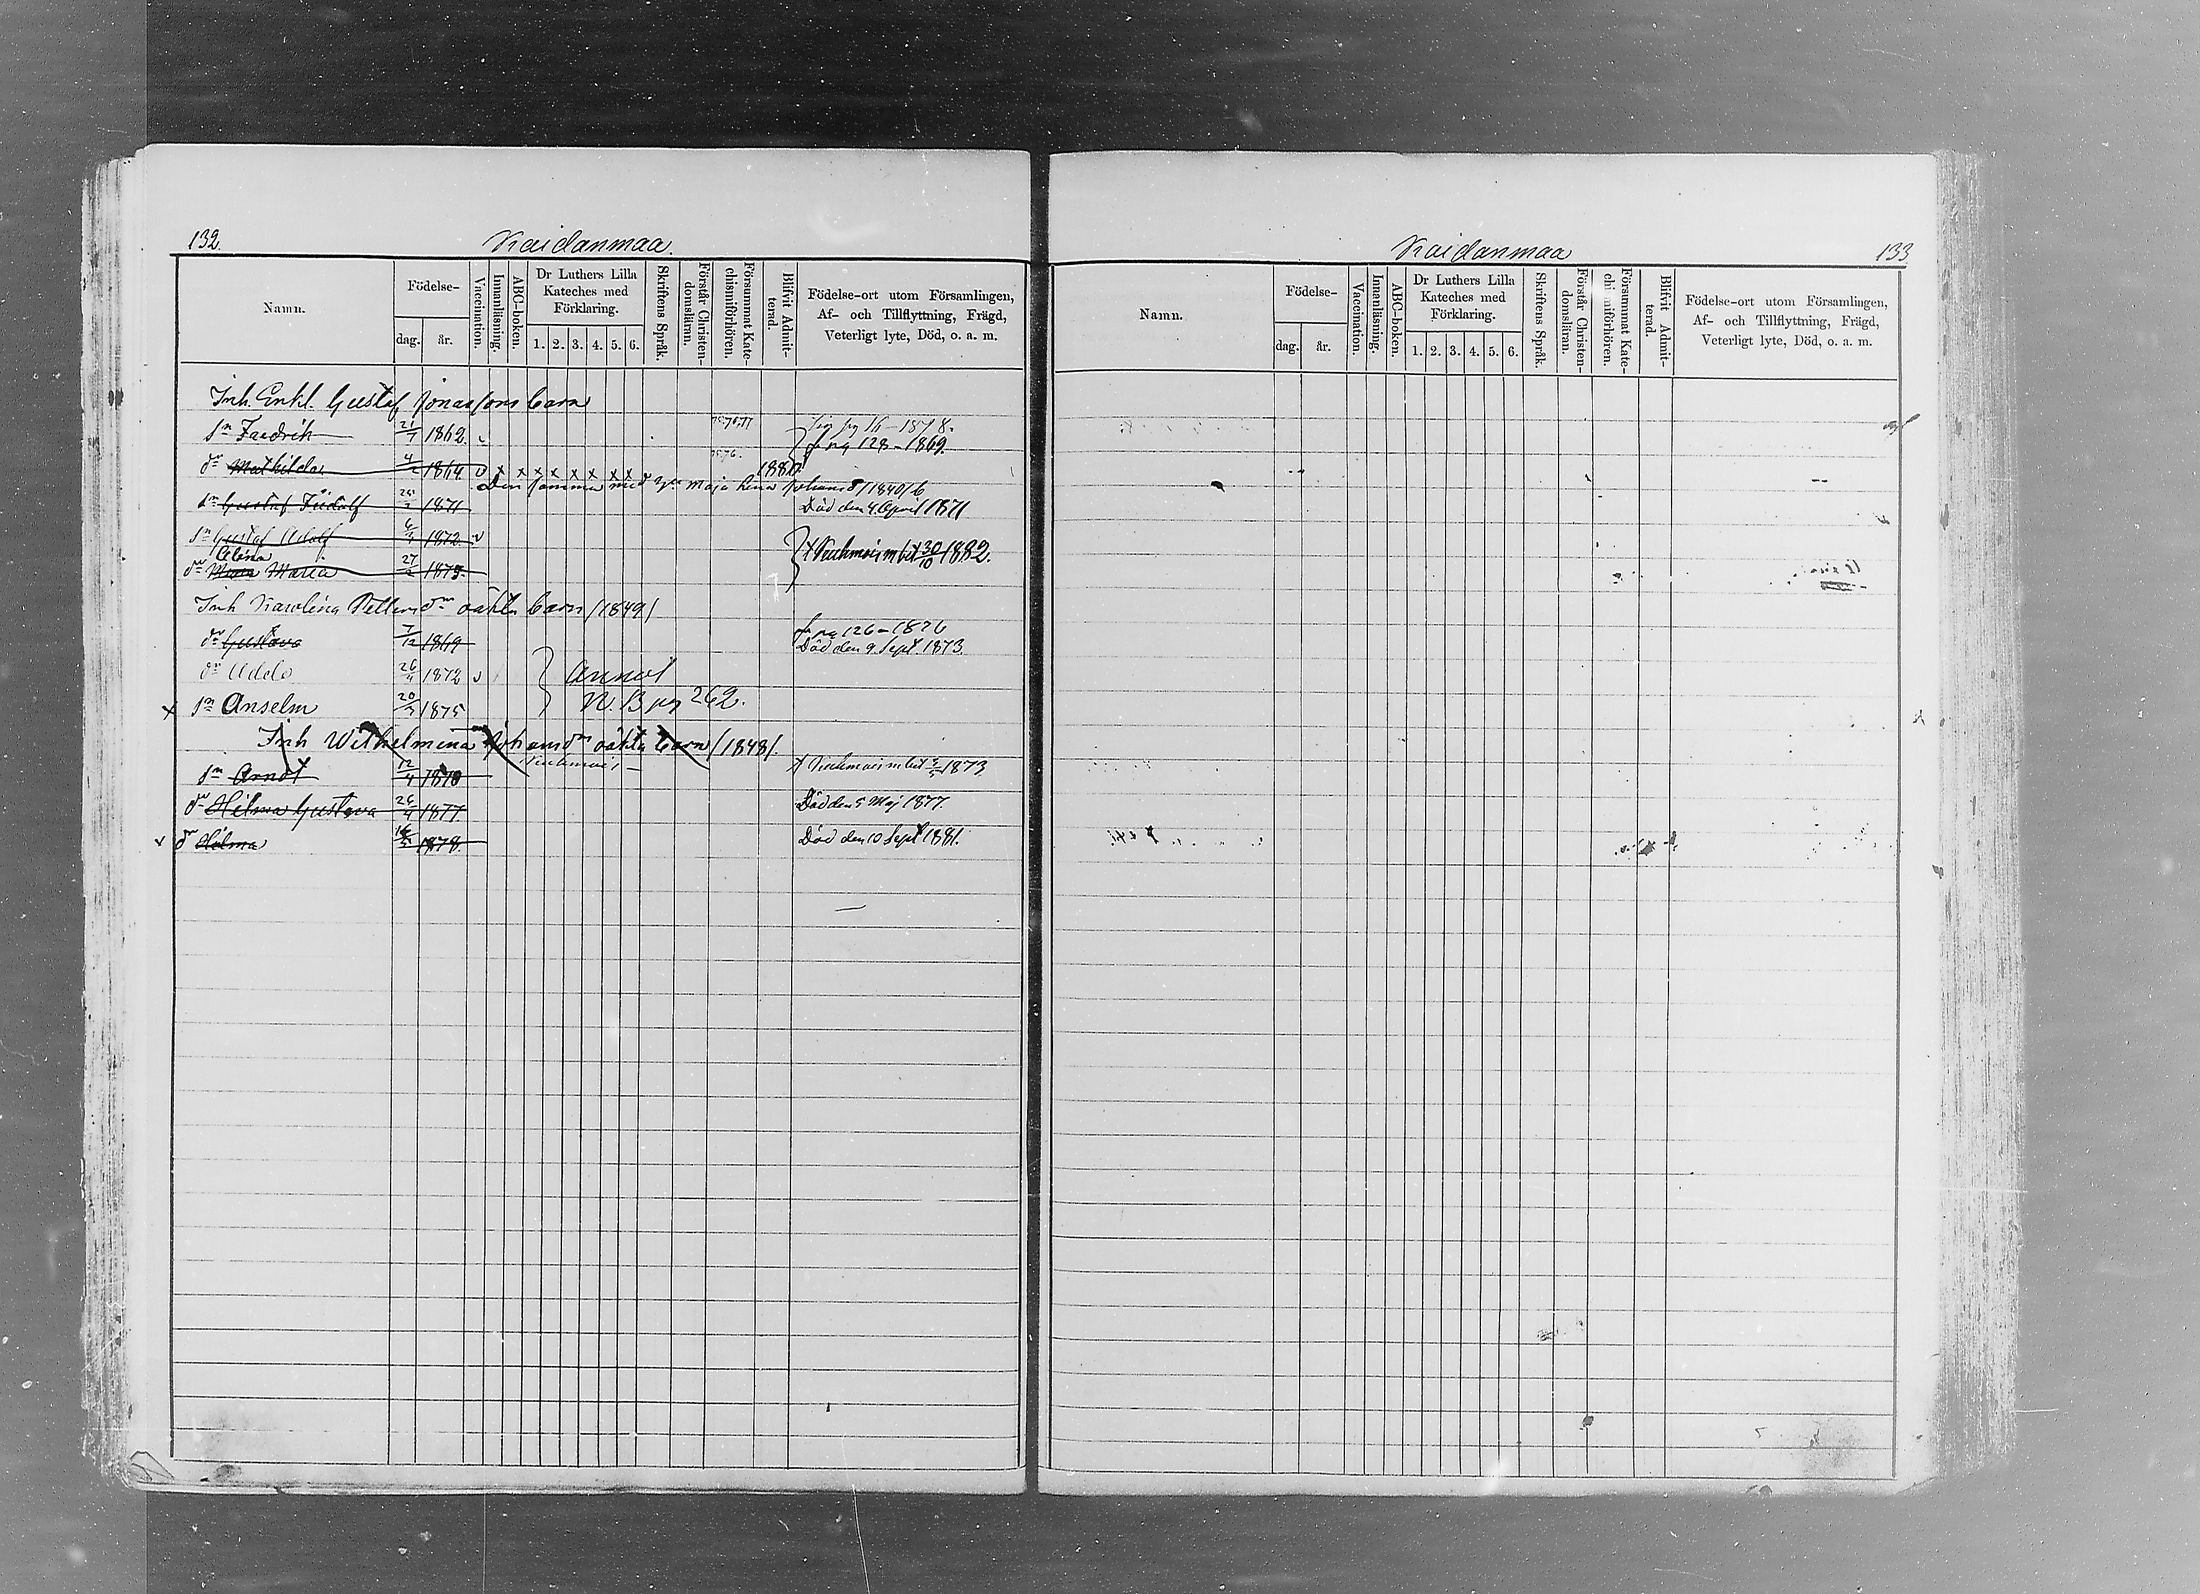 132.
Kaidanmaa.
Namn.
Födelse-
dag.
år.
Vaccination.
Innanläsning.
ABC-boken.
Dr Luthers Lilla
Kateches med
Förklaring.
1. 2. 3. 4. 5. 6.
Skriftens Språk.
Förstår Christen-
domsläran.
Försummat Kate-
chismiförhören.
Blifvit Admit-
terad.
Födelse-ort utom Församlingen,
Af- och Tillflyttning, Frägd,
Veterligt lyte, Död, o. a. m.
Inh. Enkl. Gustaf Jonassons barn
sn Fredrik 21/7 1862. v 75.76.77 1878.
fr pg 128-1869.
dr Mathilda 4/2 1864 v x x x x x x x x 1880
Den samma med Maja Lena
sn Gustaf Fridolf 1871 Död den 4 April 1871
sn Gustaf Adolf 1872. v
Alma
dr Maria 27/2 1875. 30/10 1882.
Inh Karolina oäkta barn /1849/
fr pg 126-1876
dr Gustava 7/12 1869 Död den 9. Sept 1873.
dr Adele 26/4 1872 v annot
x sn Anselm 20/7 1875 N.B pg 262.
Inh Wilhelmina oäkta barn /1848/
sn Arndt 12/4 1870 1873
dr Hilma Gustava 26/4 1877 Död den 5 Maj 1877.
v dr Hilma 1878. Död den 10 Sept 1881.
Kaidanmaa
133
Namn.
Födelse-
dag.
år.
Vaccination.
Innanläsning.
ABC-boken.
Dr Luthers Lilla
Kateches med
Förklaring.
1. 2. 3. 4. 5. 6.
Skriftens Språk.
Förstår Christen-
domsläran.
Försummat Kate-
chismiförhören.
Blifvit Admit-
terad.
Födelse-ort utom Församlingen,
Af- och Tillflyttning, Frägd,
Veterligt lyte, Död, o. a. m.